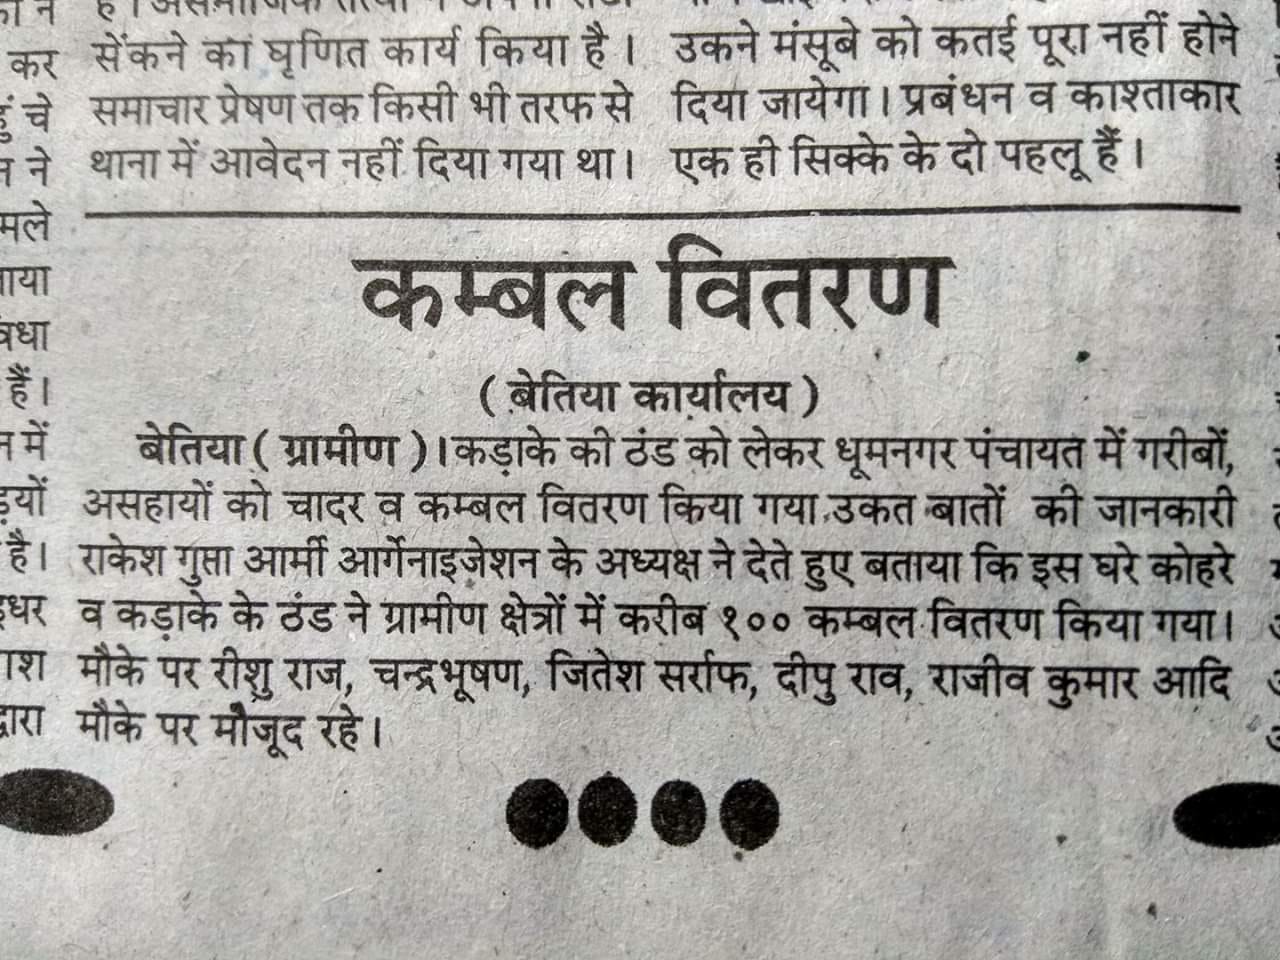 सेंकने का घृणित कार्य किया है ।
समाचार प्रेषण तक किसी भी तरफ से
थाना में आवेदन नहीं दिया गया था ।
उकने मंसूबे को कतई पूरा नहीं होने
दिया जायेगा । प्रबंधन व काश्ताकार
एक ही सिक्के के दो पहलू हैं ।
कर
चे
ने
मले
हैं ।
में
है ।
द्वारा
कम्बल वितरण
( बेतिया कार्यालय )
बेतिया ( ग्रामीण ) । कड़ाके की ठंड को लेकर धूमनगर पंचायत में गरीबों,
असहायों को चादर व कम्बल वितरण किया गया उकत बातों की जानकारी
राकेश गुप्ता आर्मी आर्गेनाइजेशन के अध्यक्ष ने देते हुए बताया कि इस घरे कोहरे
व कड़ाके के ठंड ने ग्रामीण क्षेत्रों में करीब १०० कम्बल वितरण किया गया ।
मौके पर रीशु राज, चन्द्रभूषण, जितेश सर्राफ, दीपु राव, राजीव कुमार आदि
मौके पर मौजूद रहे ।